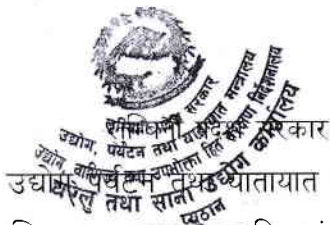 सरकार
उद्योग, पर्यटन तथा यातायात मन्त्रालय
उद्योग, वाणिज्य तथा उपभोक्ता हित संरक्षण निर्देशनालय
घरेलु तथा साना उद्योग कार्यालय
प्यूठान
प्रदेश सरकार
उद्योग पर्यटन तथा यातायात